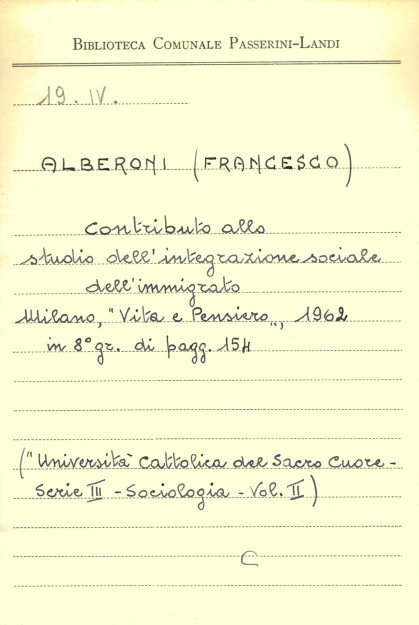 BIBLIOTECA COMUNALE PASSERINI-LANDI
19. IV.
ALBERONI (FRANCESCO)
Contributo allo
studio dell'integrazione sociale
dell'immigrato
Milano, "Vita e Pensiero", 1962
in 8° gr. di pagg. 154
("Università Cattolica del Sacro Cuore -
Serie III - Sociologia - Vol. II)
C